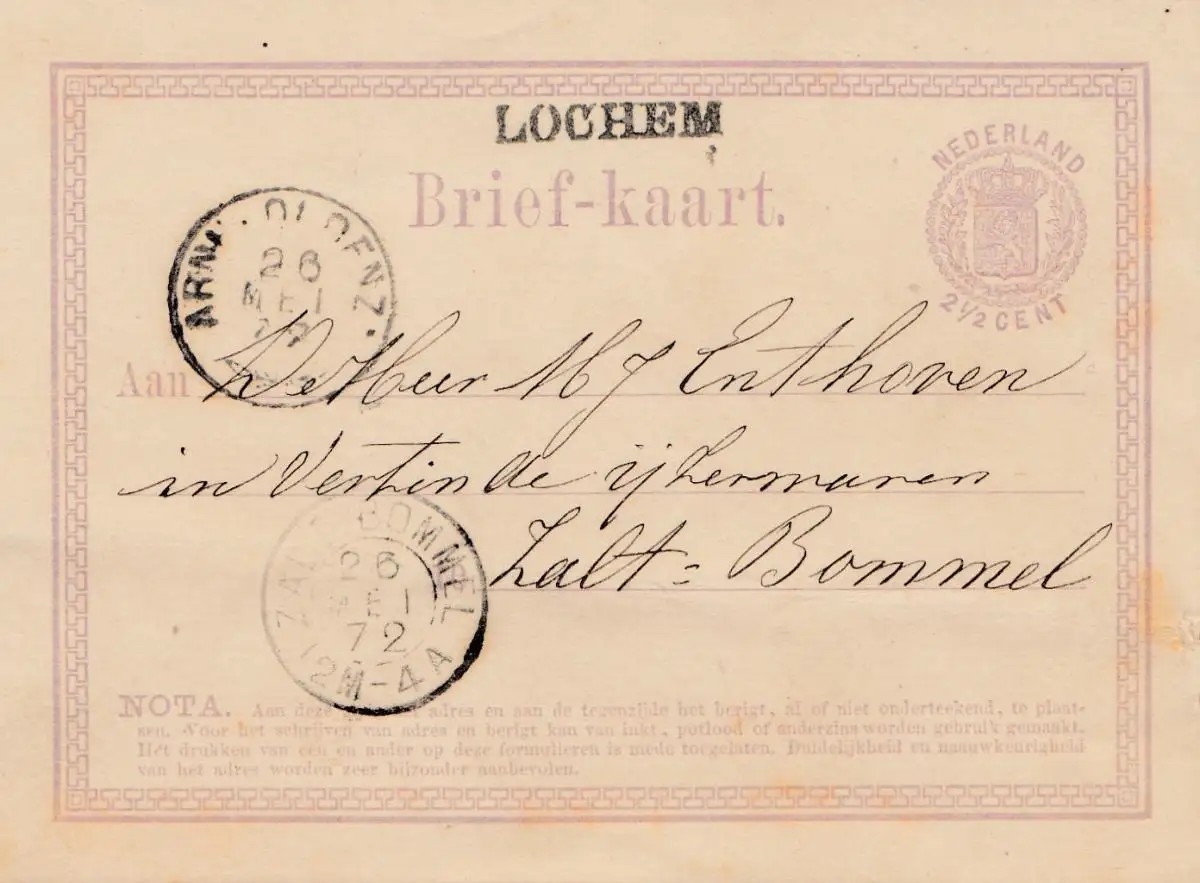 LOCHEM
Brief-kaart.
NEDERLAND
2½ CENT
26
MEI
Aan De Heer M J Enthoven
in Vertinde ijzerwaren
Zalt=Bommel
BOMMEL
26
MEI
72
12M-4A
NOTA. Aan deze adres en aan de tegenzijde het berigt, al of niet onderteekend, te plaat-
sen. Voor het schrijven van adres en berigt kan van inkt, potlood of anderzins worden gebruik gemaakt.
Het drukken van een en ander op deze formulieren is mede toegelaten. Duidelijkheid en naauwkeurigheid
van het adres worden zeer bijzonder aanbevolen.